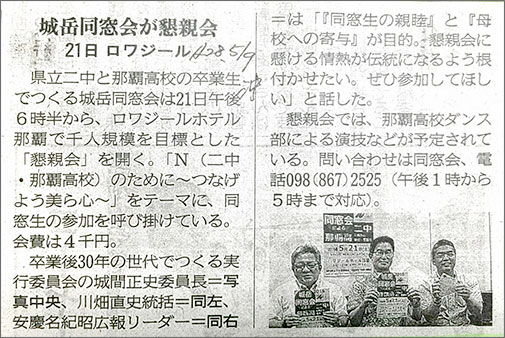 城岳同窓会が懇親会
21日 ロワジール
H28.5/9
県立二中と那覇高校の卒業生
でつくる城岳同窓会は21日午後
6時半から、ロワジールホテル
那覇で千人規模を目標とした
「懇親会」を開く。「N(二中
・那覇高校)のために〜つなげ
よう美ら心〜」をテーマに、同
窓生の参加を呼び掛けている。
会費は4千円。
卒業後30年の世代でつくる実
行委員会の城間正史委員長=写
真中央、川畑直史統括=同左、
安慶名紀昭広報リーダー=同右
=は「『同窓生の親睦』と『母
校への寄与』が目的。懇親会に
懸ける情熱が伝統になるよう根
付かせたい。ぜひ参加してほし
い」と話した。
懇親会では、那覇高校ダンス
部による演技などが予定されて
いる。問い合わせは同窓会、電
話098(867)2525(午後1時から
5時まで対応)。
同窓会
二中
那覇高
5月21日